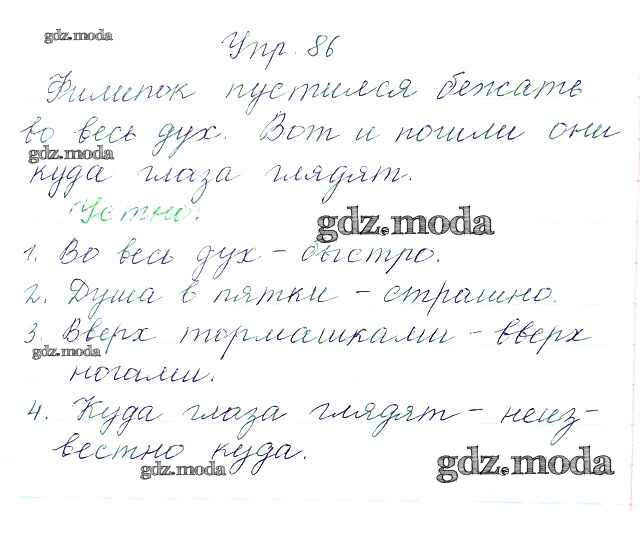 gdz.moda
Упр. 86
Филипок пустился бежать
во весь дух. Вот и пошли они
gdz.moda
куда глаза глядят.
Устно.
gdz.moda
1. Во весь дух - быстро.
2. Душа в пятки - страшно.
3. Вверх тормашками - вверх
gdz.moda
ногами.
4. Куда глаза глядят - неиз-
вестно куда.
gdz.moda
gdz.moda